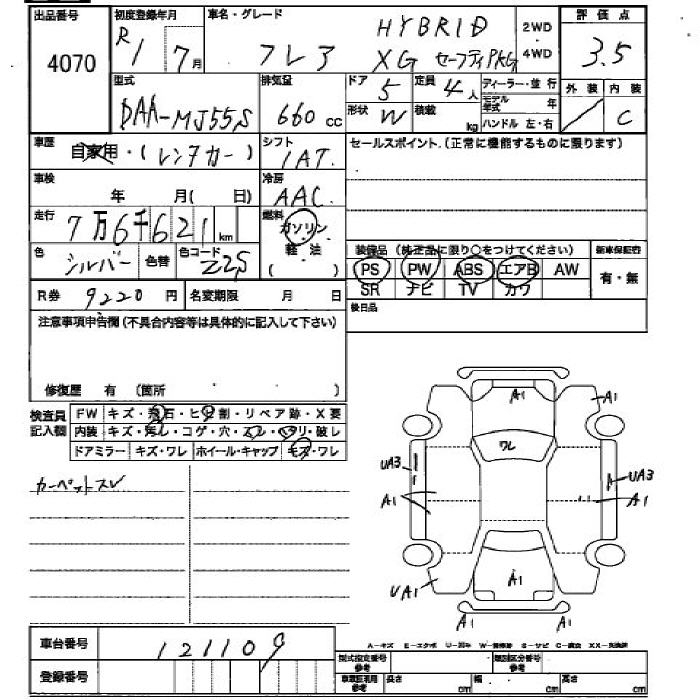 出品番号 初度登録年月 車名・グレード HYBRID 2WD 評価点
4070 R1 7月 フレア XG セーフティPKG 4WD 3.5
型式 排気量 ドア 5 定員 4人 ディーラー・並行 外装 内装
DAA-MJ55S 660 cc 形状 W 積載 kg モデル年式 年 / C
ハンドル 左・右
車歴 自家用・(レンタカー) シフト IAT セールスポイント.(正常に機能するものに限ります)
車検 年 月(日) 冷房 AAC
走行 7万6千621km 燃料 ガソリン
色 シルバー 色替 色コード Z2S 軽・法 ( ) 装備品 (純正品に限り○をつけてください) 新車保証書
PS PW ABS エアB AW 有・無
R券 9220円 名変期限 月 日 SR ナビ TV カワ
注意事項申告欄(不具合内容等は具体的に記入して下さい) 後日品
修復歴 有 (箇所 )
検査員記入欄 FW キズ・飛石・ヒビ割・リペア跡・X要
内装 キズ・汚レ・コゲ・穴・スレ・ヘタリ・破レ
ドアミラー キズ・ワレ ホイール・キャップ キズ・ワレ
カーペットスレ
A1 A1
ワレ
UA3 UA3
A1 A1
UA1 A1
A1 A1
A-キズ E-エクボ U-凹ミ W-補修跡 S-サビ C-腐食 XX-交換済
車台番号 121109 型式指定番号 参考 類別区分番号 参考
登録番号 長さ cm 幅 cm 高さ cm